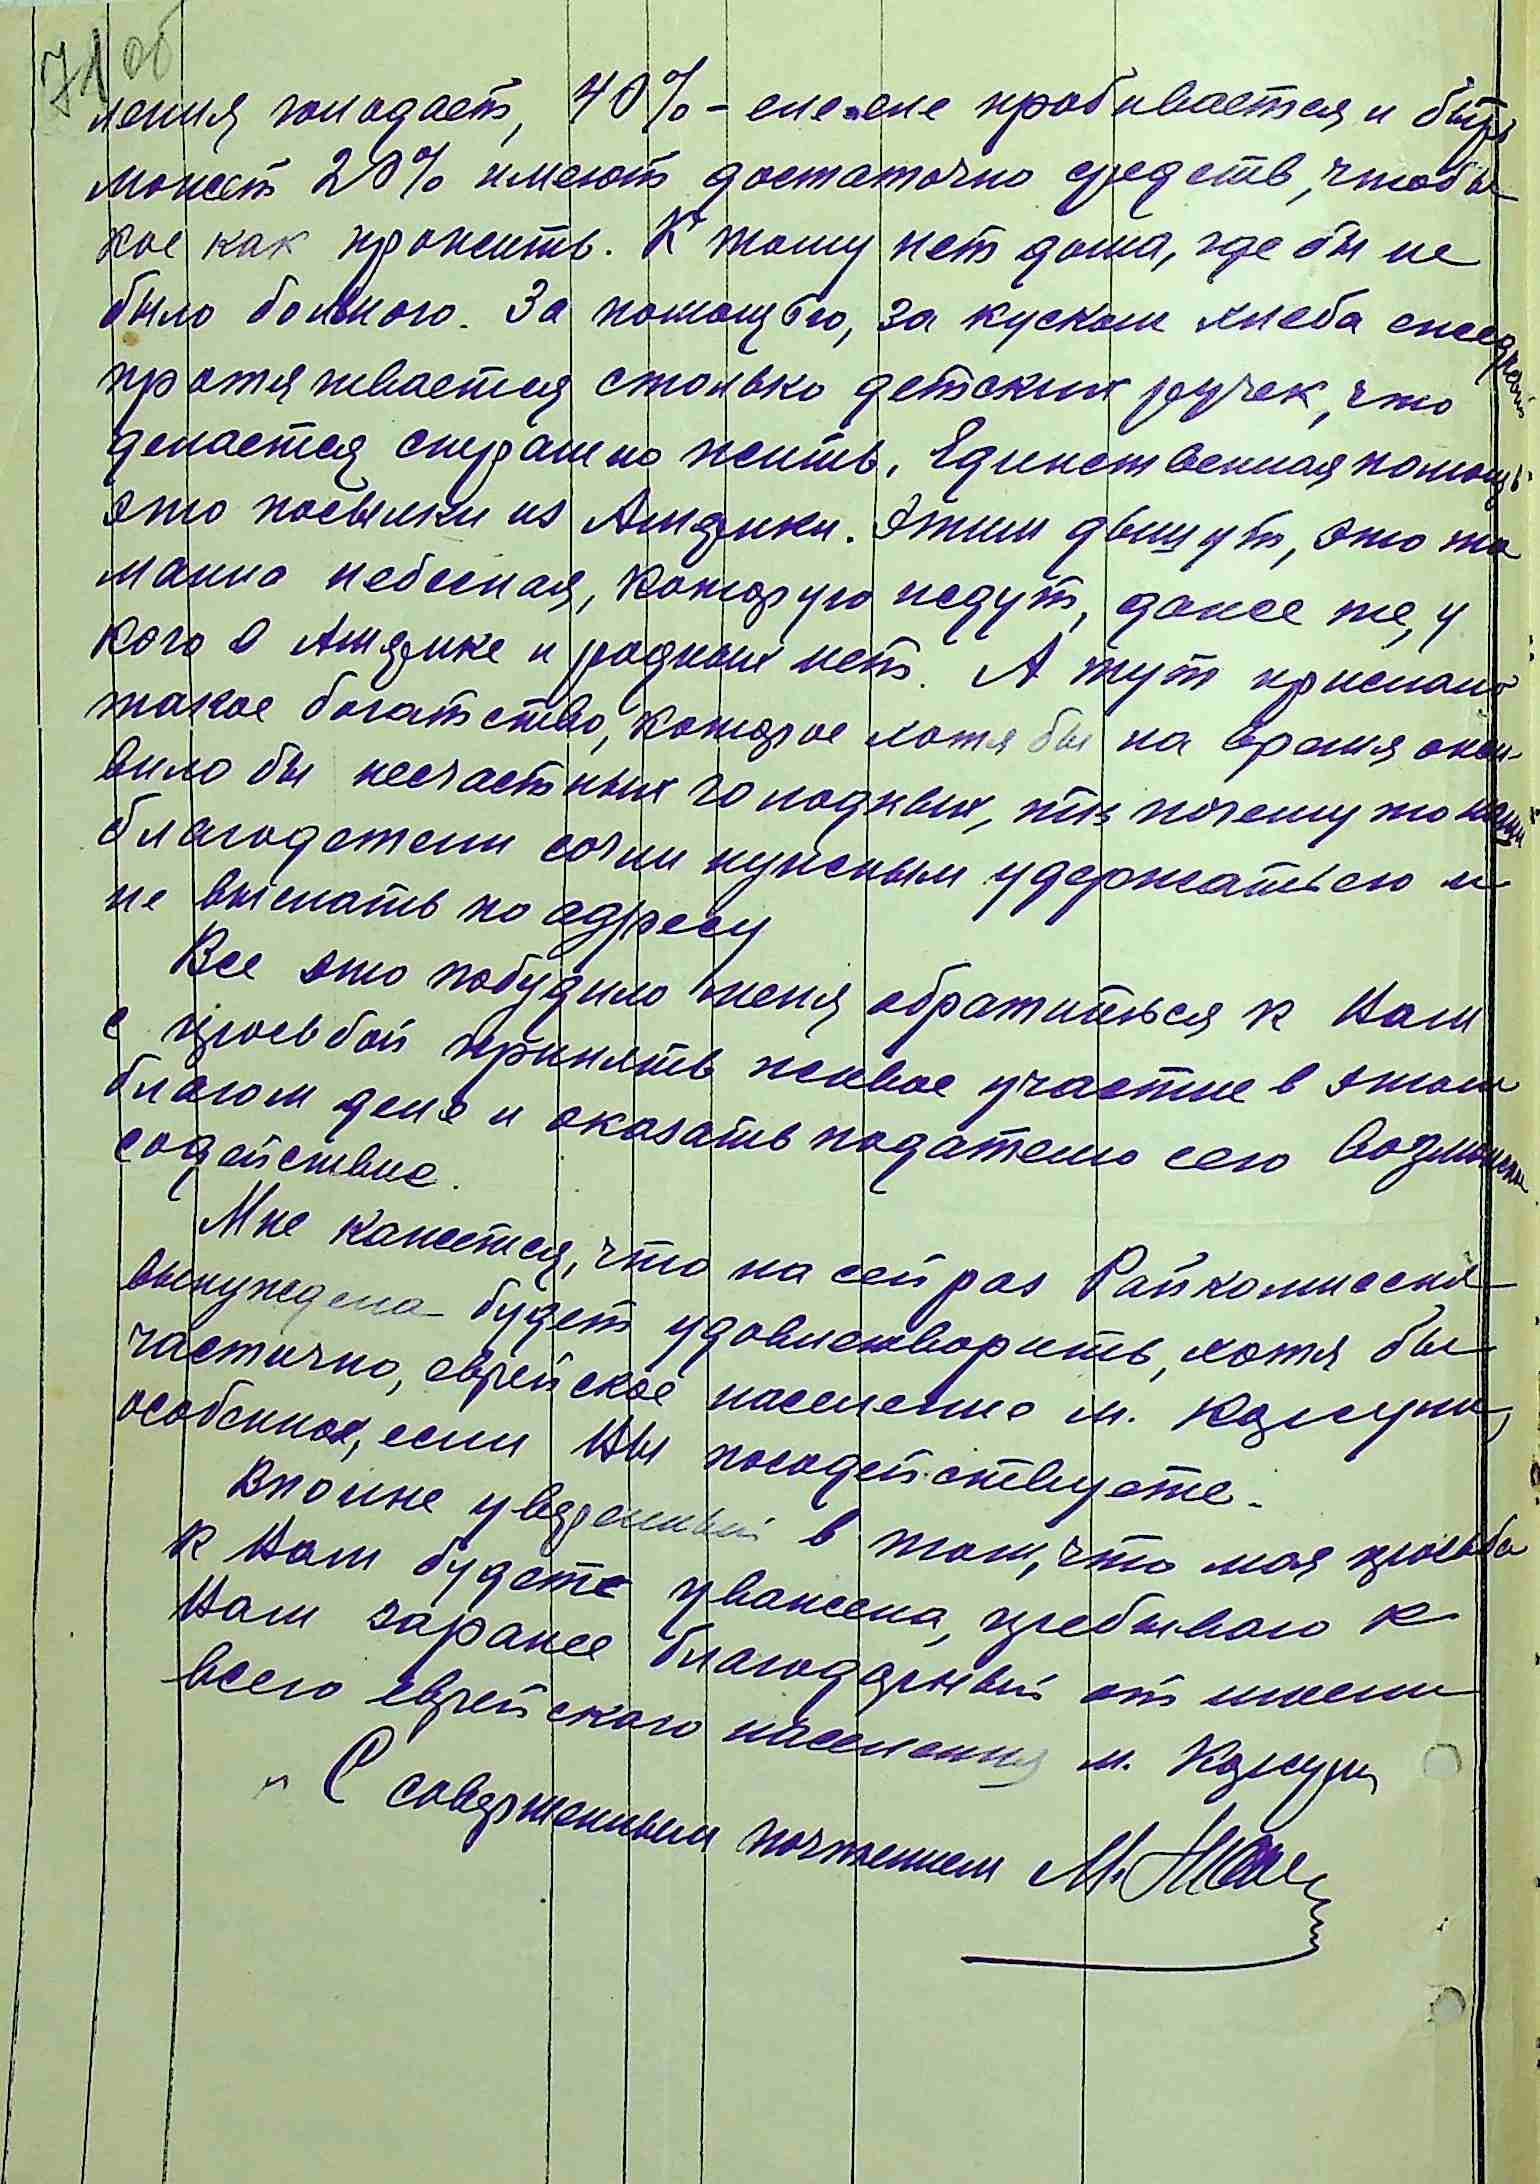 71 об
ления голодает, 40% - еле-еле пробивается и быть
может 20% имеют достаточно средств, чтобы
кое как прожить. К тому нет дома, где бы не
было больного. За помощью, за куском хлеба ежедневно
протягивается столько детских ручек, что
делается страшно жить. Единственная помощь
это посылки из Америки. Этим дышут, это та
манна небесная, которую ждут, даже те, у
кого в Америке и родных нет. А тут прислано
такое богатство, которое хотя бы на время ожи-
вило бы несчастных голодных, но почему то наши
благодетели сочли нужным удержать его и
не выслать по адресу
Все это побудило меня обратиться к Вам
с просьбой принять живое участие в этом
благом деле и оказать подателю сего возможное
содействие.
Мне кажется, что на сей раз Райкомиссия
вынуждена будет удовлетворить, хотя бы
частично, еврейское население м. Корсунь,
особенное, если Вы посодействуете.
Вполне уверенный в том, что моя просьба
к Вам будете уважена, пребываю к
Вам заранее благодарный от имени
всего еврейского населения м. Корсунь
С совершенным почтением М.